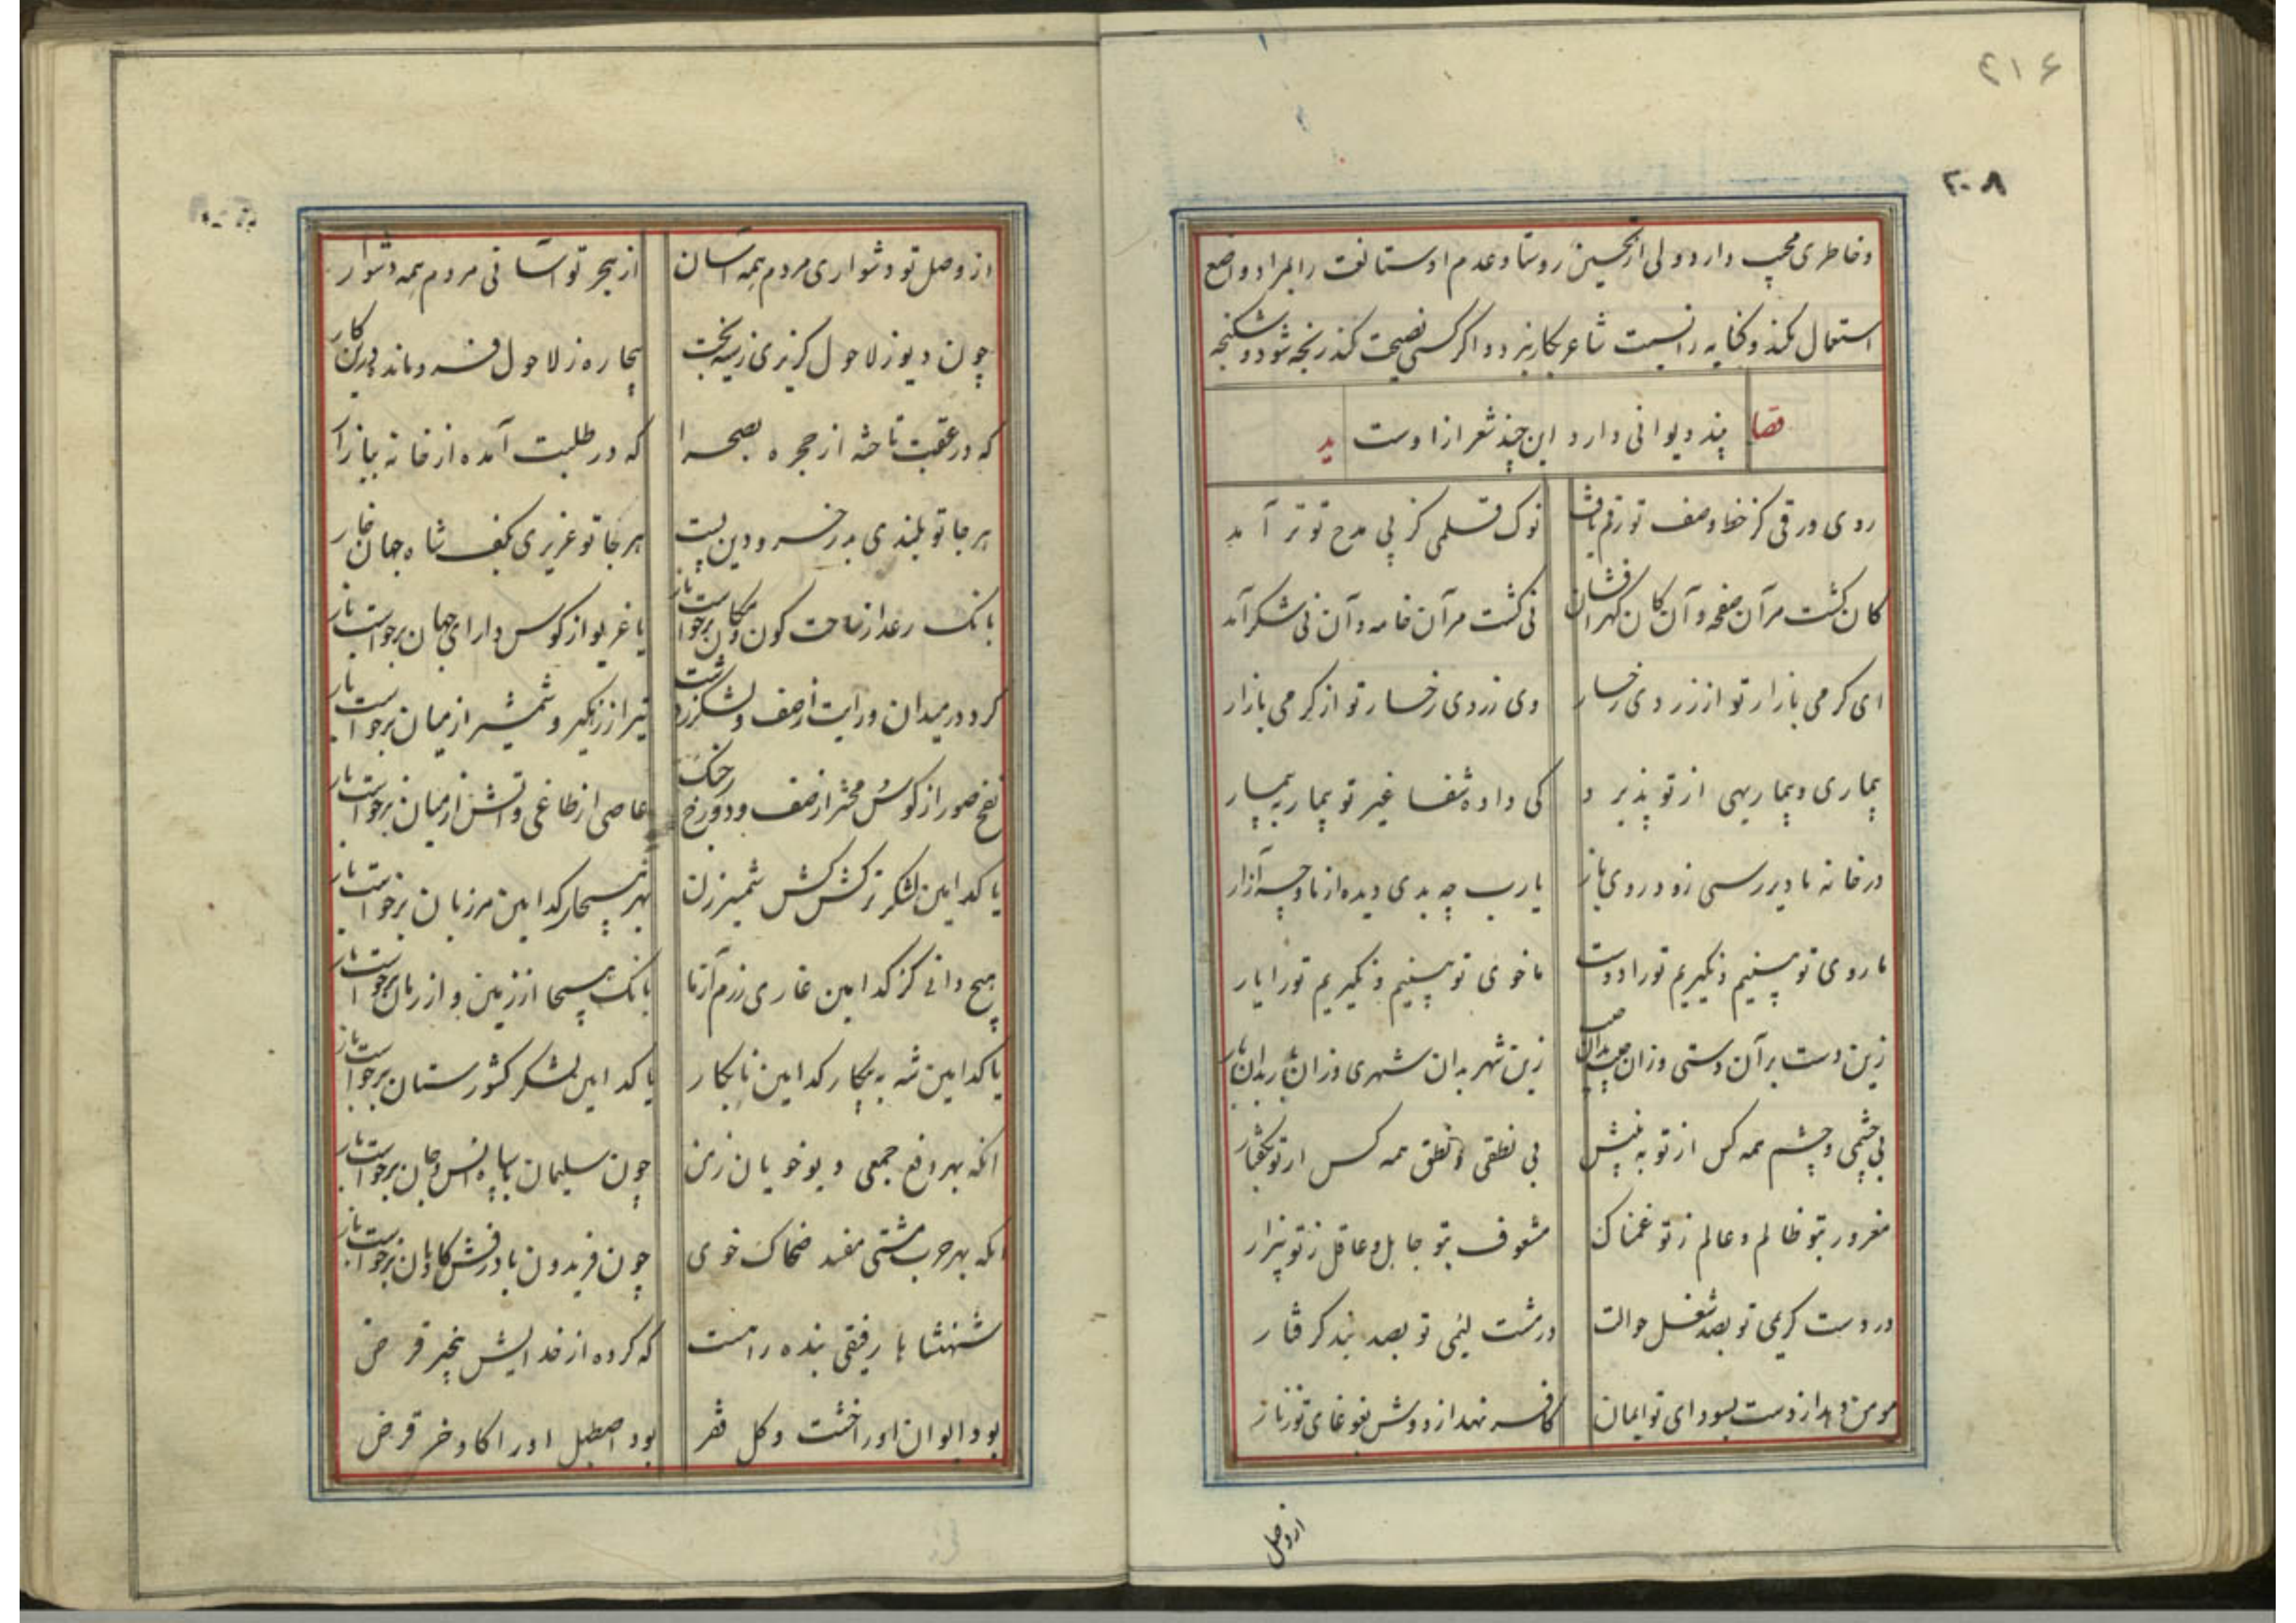 ۲۱۶
۲۰۸
و خاطری محب دارد ولی از تحسین روستا و عدم اوستا لغت را بمراد واضع
استعمال نکند و کنایه را نسبت شاعر بکار نبرد و اگر کسی نصیحت کند رنجه شود و شکنجه
قصا پند دیوانی دارد این چند شعر ازاوست ید
روی ورقی کز خط وصف تو رقم یافت نوک قلمی کز پی مدح تو تر آمد
کان گشت مر آن صفحه و آن کان گهر افشان نی گشت مر آن خامه و آن نی شکر آمد
ای گرمی بازار تو از زردی رخسار وی زردی رخسار تو از گرمی بازار
بیماری و بیمار بهی از تو پذیرد کی داده شفا غیر تو بیمار به بیمار
در خانه ما دیر رسی زود روی باز یارب چه بدی دیده از ما و چه آزار
ما روی تو بینیم و نگیریم تو را دوست ما خوی تو بینیم و نگیریم تو را یار
زین دست بر آن دستی وزان زین شهر بدان شهری وزان
بی چشمی و چشم همه کس از تو به بینش بی نطقی و نطق همه کس از تو بگفتار
مغرور بتو ظالم و عالم ز تو غمناک مشعوف بتو جاهل و عاقل ز تو بیزار
در دست کریمی تو بصد شغل حوالت در مشت لئیمی تو بصد بند گرفتار
مومن دهد از دست بسودای تو ایمان کافر نهد از دوش بغوغای تو زنار
از وصل
از وصل تو دشواری مردم همه آسان از هجر تو آسانی مردم همه دشوار
چون دیو ز لاحول گریزی زسیه بخت بیچاره ز لاحول فرو ماند درین کار
که در عقبت تاخته از حجره بصحرا که در طلبت آمده از خانه ببازار
هر جا تو بلندی بدر خسرو دین پست هر جا تو عزیزی بکف شاه جهان خوار
بانک رعد از ساحت کون و مکان برخواست باز یا غریو از کوس دارای جهان برخواست باز
کرد در میدان و رایت از صف و لشکر ز دشت تیر از زهگیر و شمشیر از میان برخواست باز
نفخ صور از کوس محشر از صف و دوزخ ز جنگ عاصی از طاغی و آتش از میان برخواست باز
یا کدامین لشکر ترکش کش شمشیر زن بهر هیجا کدامین مرزبان برخواست باز
هیچ دانی کز کدامین غازی رزم آزما بانک هیجا از زمین و از زمان برخواست باز
یا کدامین شه به پیکار کدامین نابکار یا کدامین لشکر کشورستان برخواست باز
آنکه بهر دفع جمعی دیو خویان زمن چون سلیمان با سپاه انس و جان برخواست باز
آنکه بهر حرب مشتی مفسد ضحاک خوی چون فریدون با درفش کاویان برخواست باز
شهنشاها رفیقی بنده را هست که کرده از خدایش بخیر قرض
بود ایوان او را خشت و گل قرض بود اصطبل او را گاو و خر قرض